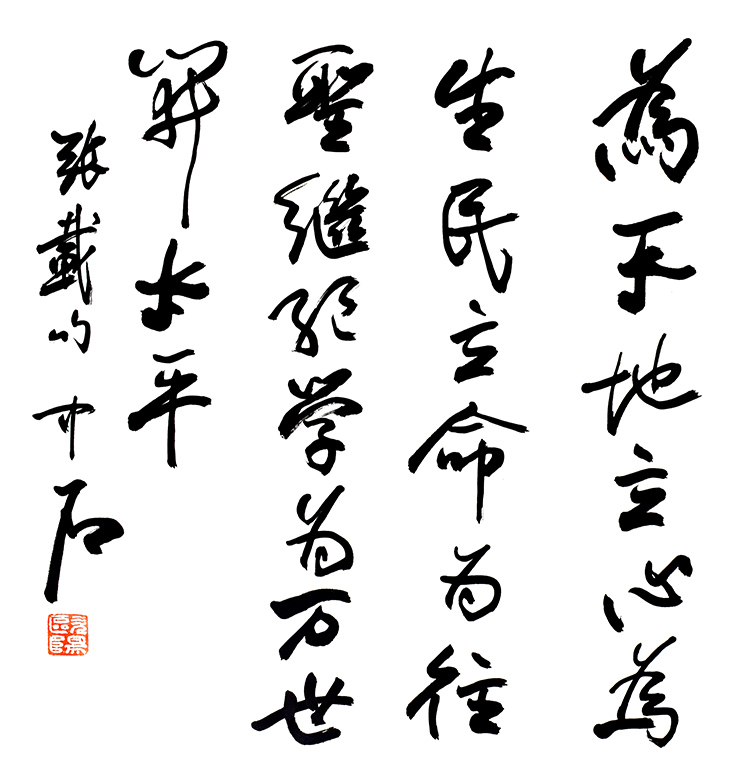 為天地立心為
生民立命为往
聖繼絕学为万世
開太平
張載句 中石